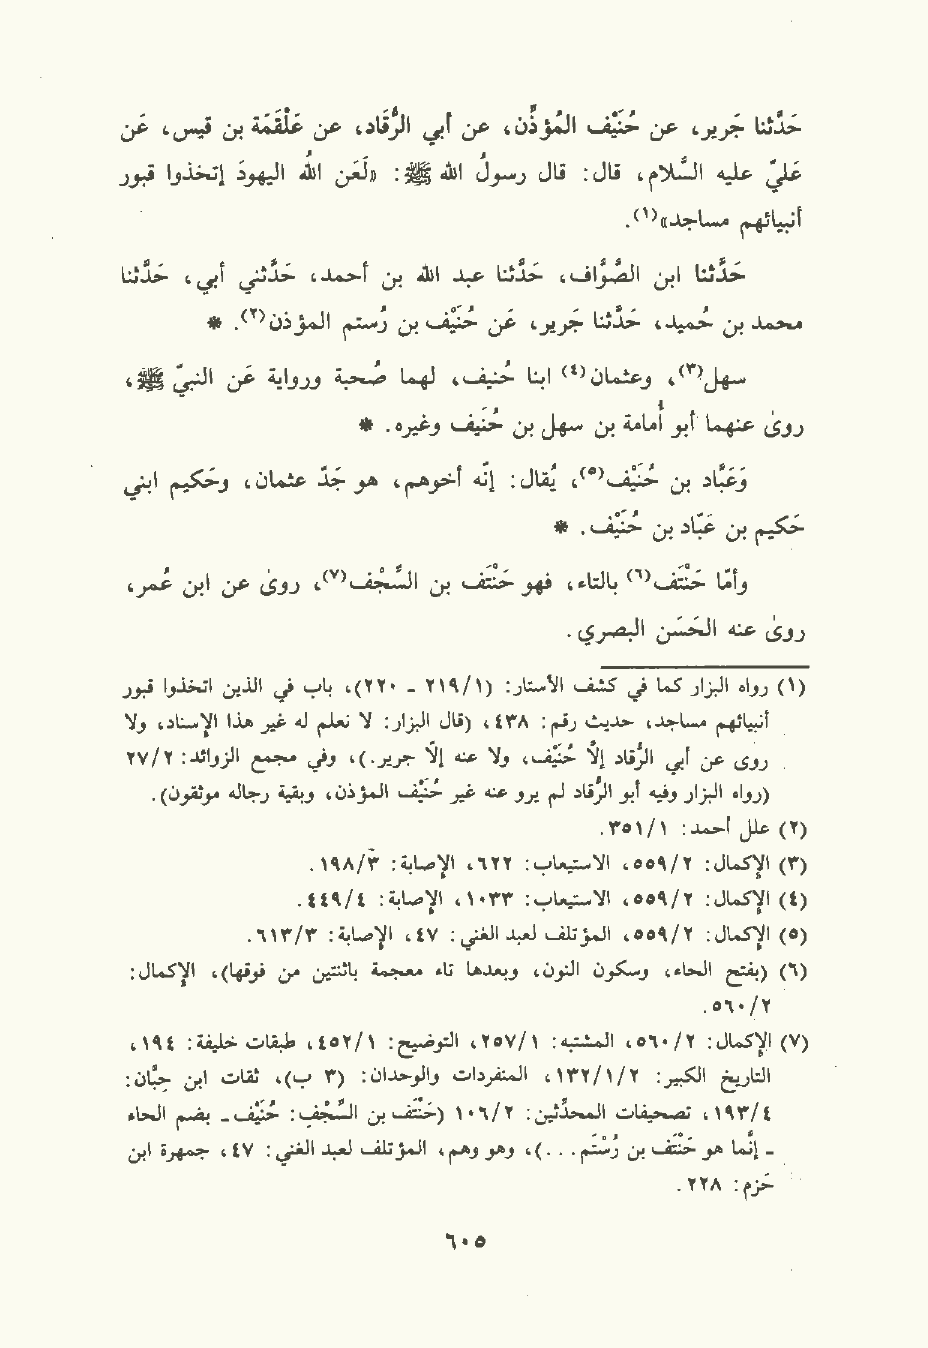 حَدَّثنا جَرير، عن حُنَيْف المُؤذِّن، عن أبي الرُّقَاد، عن عَلْقَمَة بن قيس، عَن
عَليّ عليه السَّلام، قال: قال رسولُ الله ﷺ: «لَعَن اللهُ اليهودَ إتخذوا قبور
أنبيائهم مساجد»(١).
حَدَّثنا ابن الصَّوَّاف، حَدَّثنا عبد الله بن أحمد، حَدَّثني أبي، حَدَّثنا
محمد بن حُميد، حَدَّثنا جَرير، عَن حُنَيْف بن رُستم المؤذن(٢). *
سهل(٣)، وعثمان(٤) ابنا حُنيف، لهما صُحبة ورواية عَن النبيّ ﷺ،
روىٰ عنهما أبو أُمامة بن سهل بن حُنَيف وغيره. *
وَعَبَّاد بن حُنَيْف(٥)، يُقال: إنَّه أخوهم، هو جَدّ عثمان، وحَكيم ابني
حَكيم بن عَبّاد بن حُنَيْف. *
وأمّا حَنْتَف(٦) بالتاء، فهو حَنْتَف بن السِّجْف(٧)، روىٰ عن ابن عُمر،
روىٰ عنه الحَسَن البصري.
(١) رواه البزار كما في كشف الأستار: (٢١٩/١ - ٢٢٠)، باب في الذين اتخذوا قبور
أنبيائهم مساجد، حديث رقم: ٤٣٨، (قال البزار: لا نعلم له غير هذا الإسناد، ولا
روى عن أبي الرُّقاد إلَّا حُنَيْف، ولا عنه إلّا جرير.)، وفي مجمع الزوائد: ٢٧/٢
(رواه البزار وفيه أبو الرُّقاد لم يرو عنه غير حُنَيْف المؤذن، وبقية رجاله موثقون).
(٢) علل أحمد: ٣٥١/١.
(٣) الإكمال: ٥٥٩/٢، الاستيعاب: ٦٢٢، الإصابة: ١٩٨/٣.
(٤) الإكمال: ٥٥٩/٢، الاستيعاب: ١٠٣٣، الإصابة: ٤٤٩/٤.
(٥) الإكمال: ٥٥٩/٢، المؤتلف لعبد الغني: ٤٧، الإصابة: ٦١٣/٣.
(٦) (بفتح الحاء، وسكون النون، وبعدها تاء معجمة باثنتين من فوقها)، الإكمال:
٥٦٠/٢.
(٧) الإكمال: ٥٦٠/٢، المشتبه: ٢٥٧/١، التوضيح: ٤٥٢/١، طبقات خليفة: ١٩٤،
التاريخ الكبير: ١٣٢/١/٢، المنفردات والوحدان: (٣ ب)، ثقات ابن حِبَّان:
١٩٣/٤، تصحيفات المحدِّثين: ١٠٦/٢ (حَنْتَف بن السِّجْف: حُنَيْف - بضم الحاء
- إنَّما هو حَنْتَف بن رُسْتَم...)، وهو وهم، المؤتلف لعبد الغني: ٤٧، جمهرة ابن
حَزم: ٢٢٨.
٦٠٥